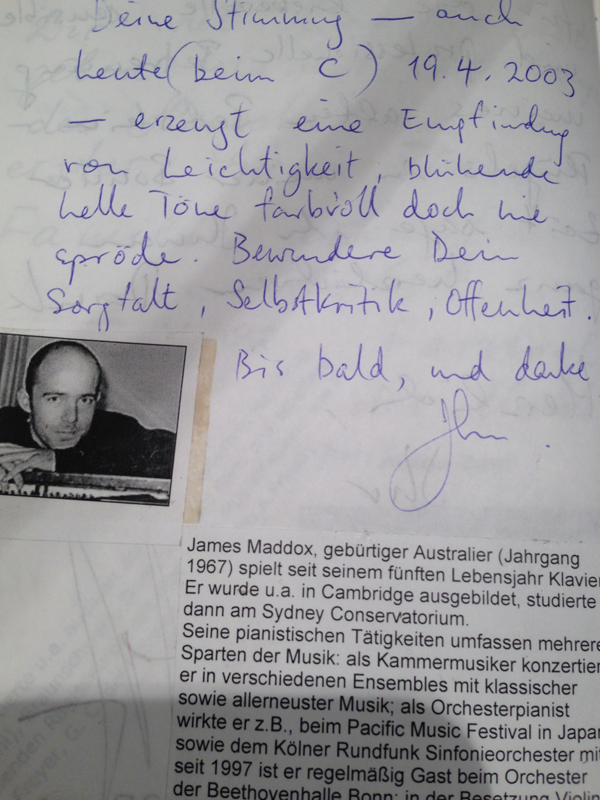 Deine Stimmung — auch
heute (beim C) 19.4.2003
— erzeugt eine Empfindung
von Leichtigkeit, blühende
helle Töne farbvoll doch nie
spröde. Bewundere Dein
Sorgfalt, Selbstkritik, Offenheit.
Bis bald, und danke
James Maddox, gebürtiger Australier (Jahrgang
1967) spielt seit seinem fünften Lebensjahr Klavier
Er wurde u.a. in Cambridge ausgebildet, studierte
dann am Sydney Conservatorium.
Seine pianistischen Tätigkeiten umfassen mehrere
Sparten der Musik: als Kammermusiker konzertier
er in verschiedenen Ensembles mit klassischer
sowie allerneuster Musik; als Orchesterpianist
wirkte er z.B., beim Pacific Music Festival in Japan
sowie dem Kölner Rundfunk Sinfonieorchester mit
seit 1997 ist er regelmäßig Gast beim Orchester
der Beethovenhalle Bonn; in der Besetzung Violin